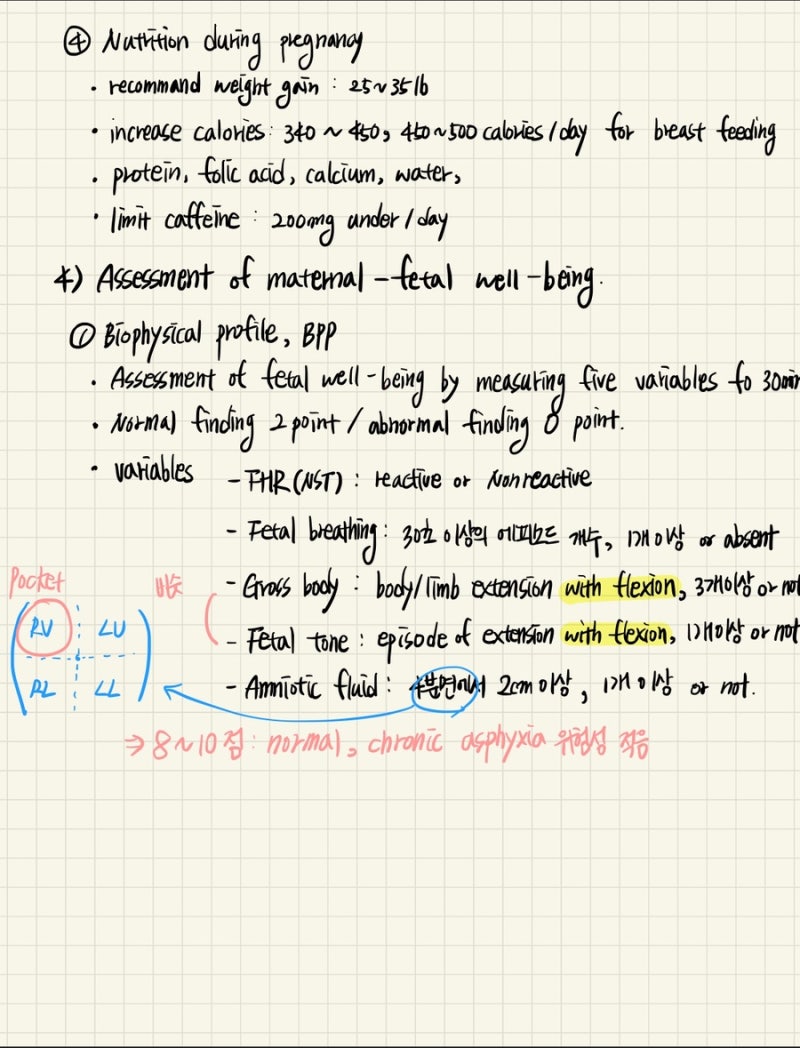 ④ Nutrition during pregnancy
· recommand weight gain : 25~35 lb
· increase calories : 340 ~ 450, 450~500 calories/day for breast feeding
· protein, folic acid, calcium, water,
· limit caffeine : 200mg under/day
4) Assessment of maternal-fetal well-being.
① Biophysical profile, BPP
· Assessment of fetal well-being by measuring five variables fo 30min
· Normal finding 2 point / abnormal finding 0 point.
· variables - FHR(NST) : reactive or Nonreactive
- Fetal breathing : 30초 이상의 에피소드 개수, 1개 이상 or absent
- Gross body : body/limb extension with flexion, 3개이상 or not
- Fetal tone : episode of extension with flexion, 1개이상 or not
- Amniotic fluid : 4분면에서 2cm 이상, 1개 이상 or not.
Pocket
비슷
RU LU
RL LL
→ 8~10점 : normal, chronic asphyxia 위험성 적음